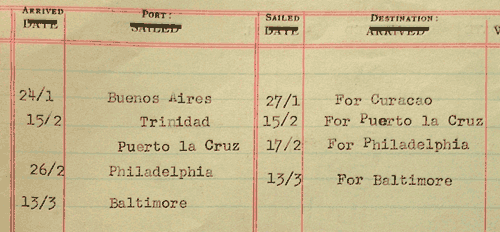 ARRIVED PORT: SAILED DESTINATION:
DATE SAILED DATE ARRIVED
24/1 Buenos Aires 27/1 For Curacao
15/2 Trinidad 15/2 For Puerto la Cruz
Puerto la Cruz 17/2 For Philadelphia
26/2 Philadelphia 13/3 For Baltimore
13/3 Baltimore